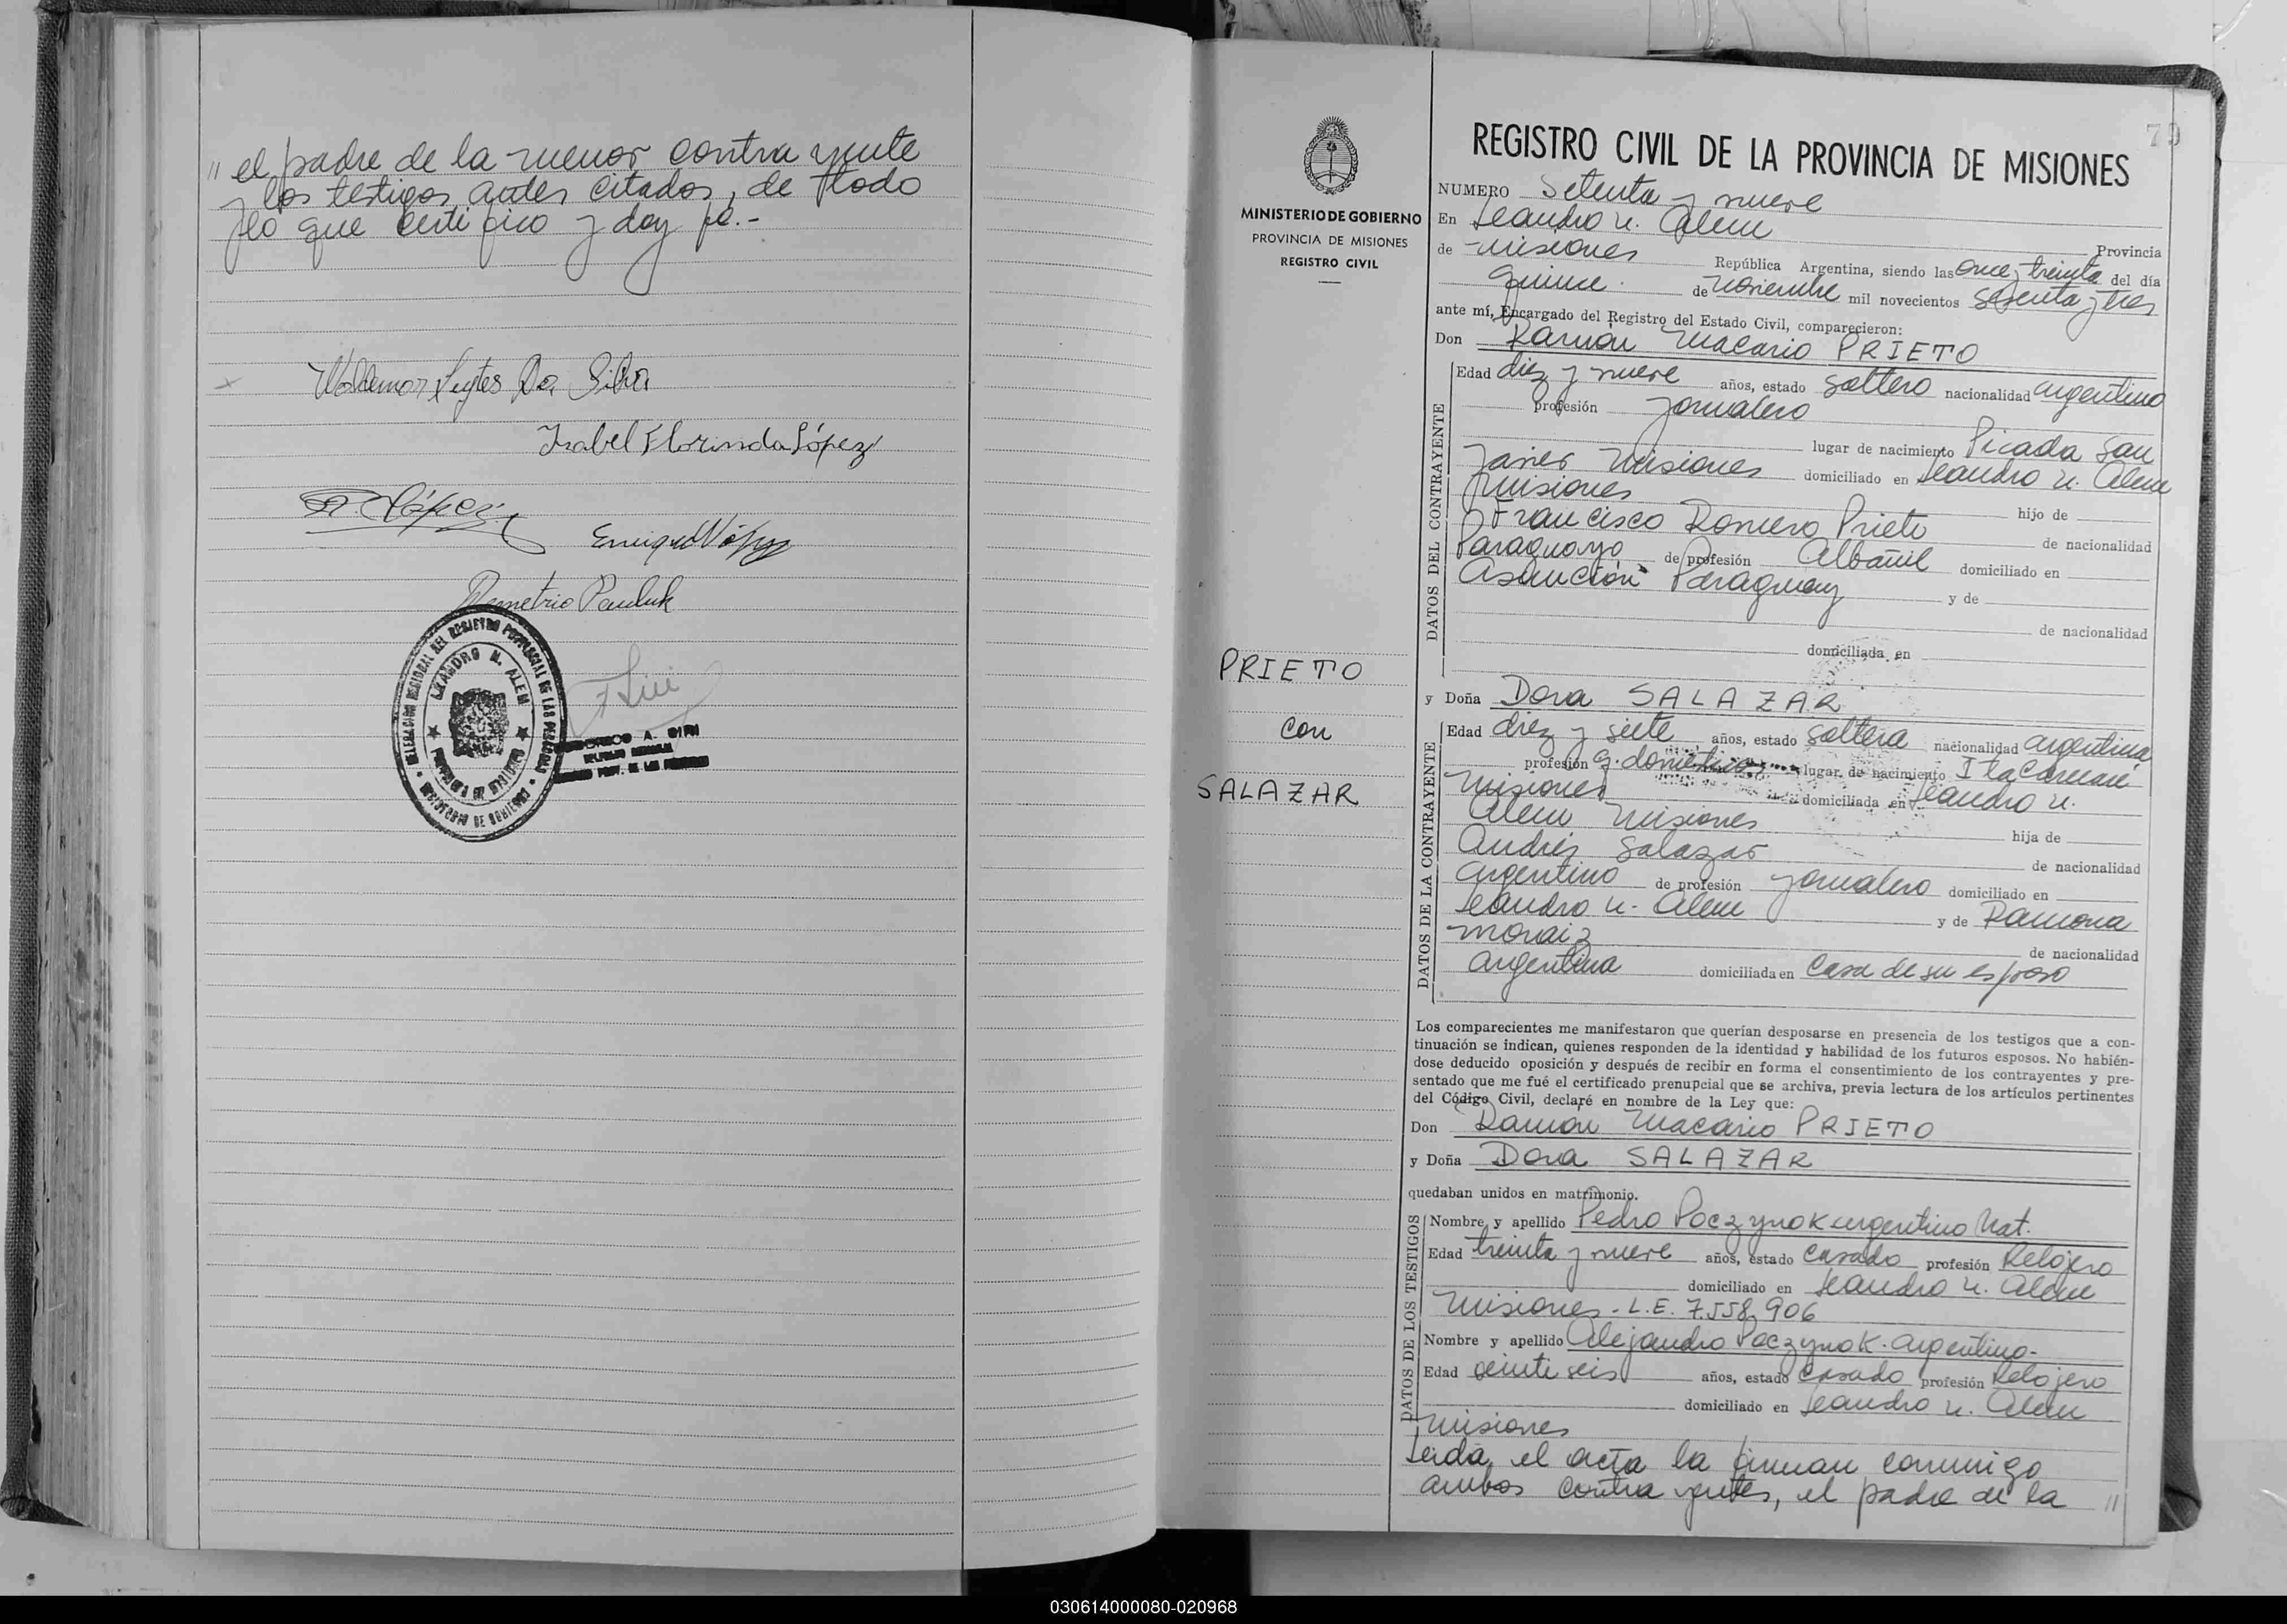 " el padre de la menor contrayente
y los testigos antes citados, de todo
lo que certifico y doy fe.-
Waldemar Da Silva
Isabel Florinda López
López
Enrique
Demetrio Pauluk
DELEGACION REGIONAL DEL REGISTRO PROVINCIAL DE LAS PERSONAS
LEANDRO N. ALEM
PROVINCIA DE MISIONES
MINISTERIO DE GOBIERNO
79
MINISTERIO DE GOBIERNO
PROVINCIA DE MISIONES
REGISTRO CIVIL
PRIETO
con
SALAZAR
REGISTRO CIVIL DE LA PROVINCIA DE MISIONES
NUMERO Setenta y nueve
En Leandro N. Alem
Provincia
de Misiones República Argentina, siendo las once y treinta del día
quince de noviembre mil novecientos sesenta y tres
ante mí, Encargado del Registro del Estado Civil, comparecieron:
Don Ramón Macario PRIETO
DATOS DEL CONTRAYENTE
Edad diez y nueve años, estado soltero nacionalidad argentino
profesión Jornalero
lugar de nacimiento Picada San
Javier Misiones domiciliado en Leandro N. Alem
Misiones hijo de
Francisco Romero Prieto de nacionalidad
Paraguayo de profesión Albañil domiciliado en
Asunción Paraguay y de
de nacionalidad
domiciliada en
y Doña Dora SALAZAR
DATOS DE LA CONTRAYENTE
Edad diez y siete años, estado soltera nacionalidad argentina
profesión q. domésticos lugar de nacimiento Itacaruaré
Misiones domiciliada en Leandro N.
Alem Misiones hija de
Andrés Salazar de nacionalidad
argentino de profesión Jornalero domiciliado en
Leandro N. Alem y de Ramona
Moraiz de nacionalidad
argentina domiciliada en casa de su esposo
Los comparecientes me manifestaron que querían desposarse en presencia de los testigos que a con-
tinuación se indican, quienes responden de la identidad y habilidad de los futuros esposos. No habién-
dose deducido oposición y después de recibir en forma el consentimiento de los contrayentes y pre-
sentado que me fué el certificado prenupcial que se archiva, previa lectura de los artículos pertinentes
del Código Civil, declaré en nombre de la Ley que:
Don Ramón Macario PRIETO
y Doña Dora SALAZAR
quedaban unidos en matrimonio.
DATOS DE LOS TESTIGOS
Nombre y apellido Pedro Poczynok argentino Nat.
Edad treinta y nueve años, estado casado profesión Relojero
domiciliado en Leandro N. Alem
Misiones - L.E. 7.558.906
Nombre y apellido Alejandro Poczynok. argentino-
Edad veinte seis años, estado casado profesión Relojero
domiciliado en Leandro N. Alem
Misiones
Leida el acta la firman conmigo
ambos contrayentes, el padre de la "
030614000080-020968